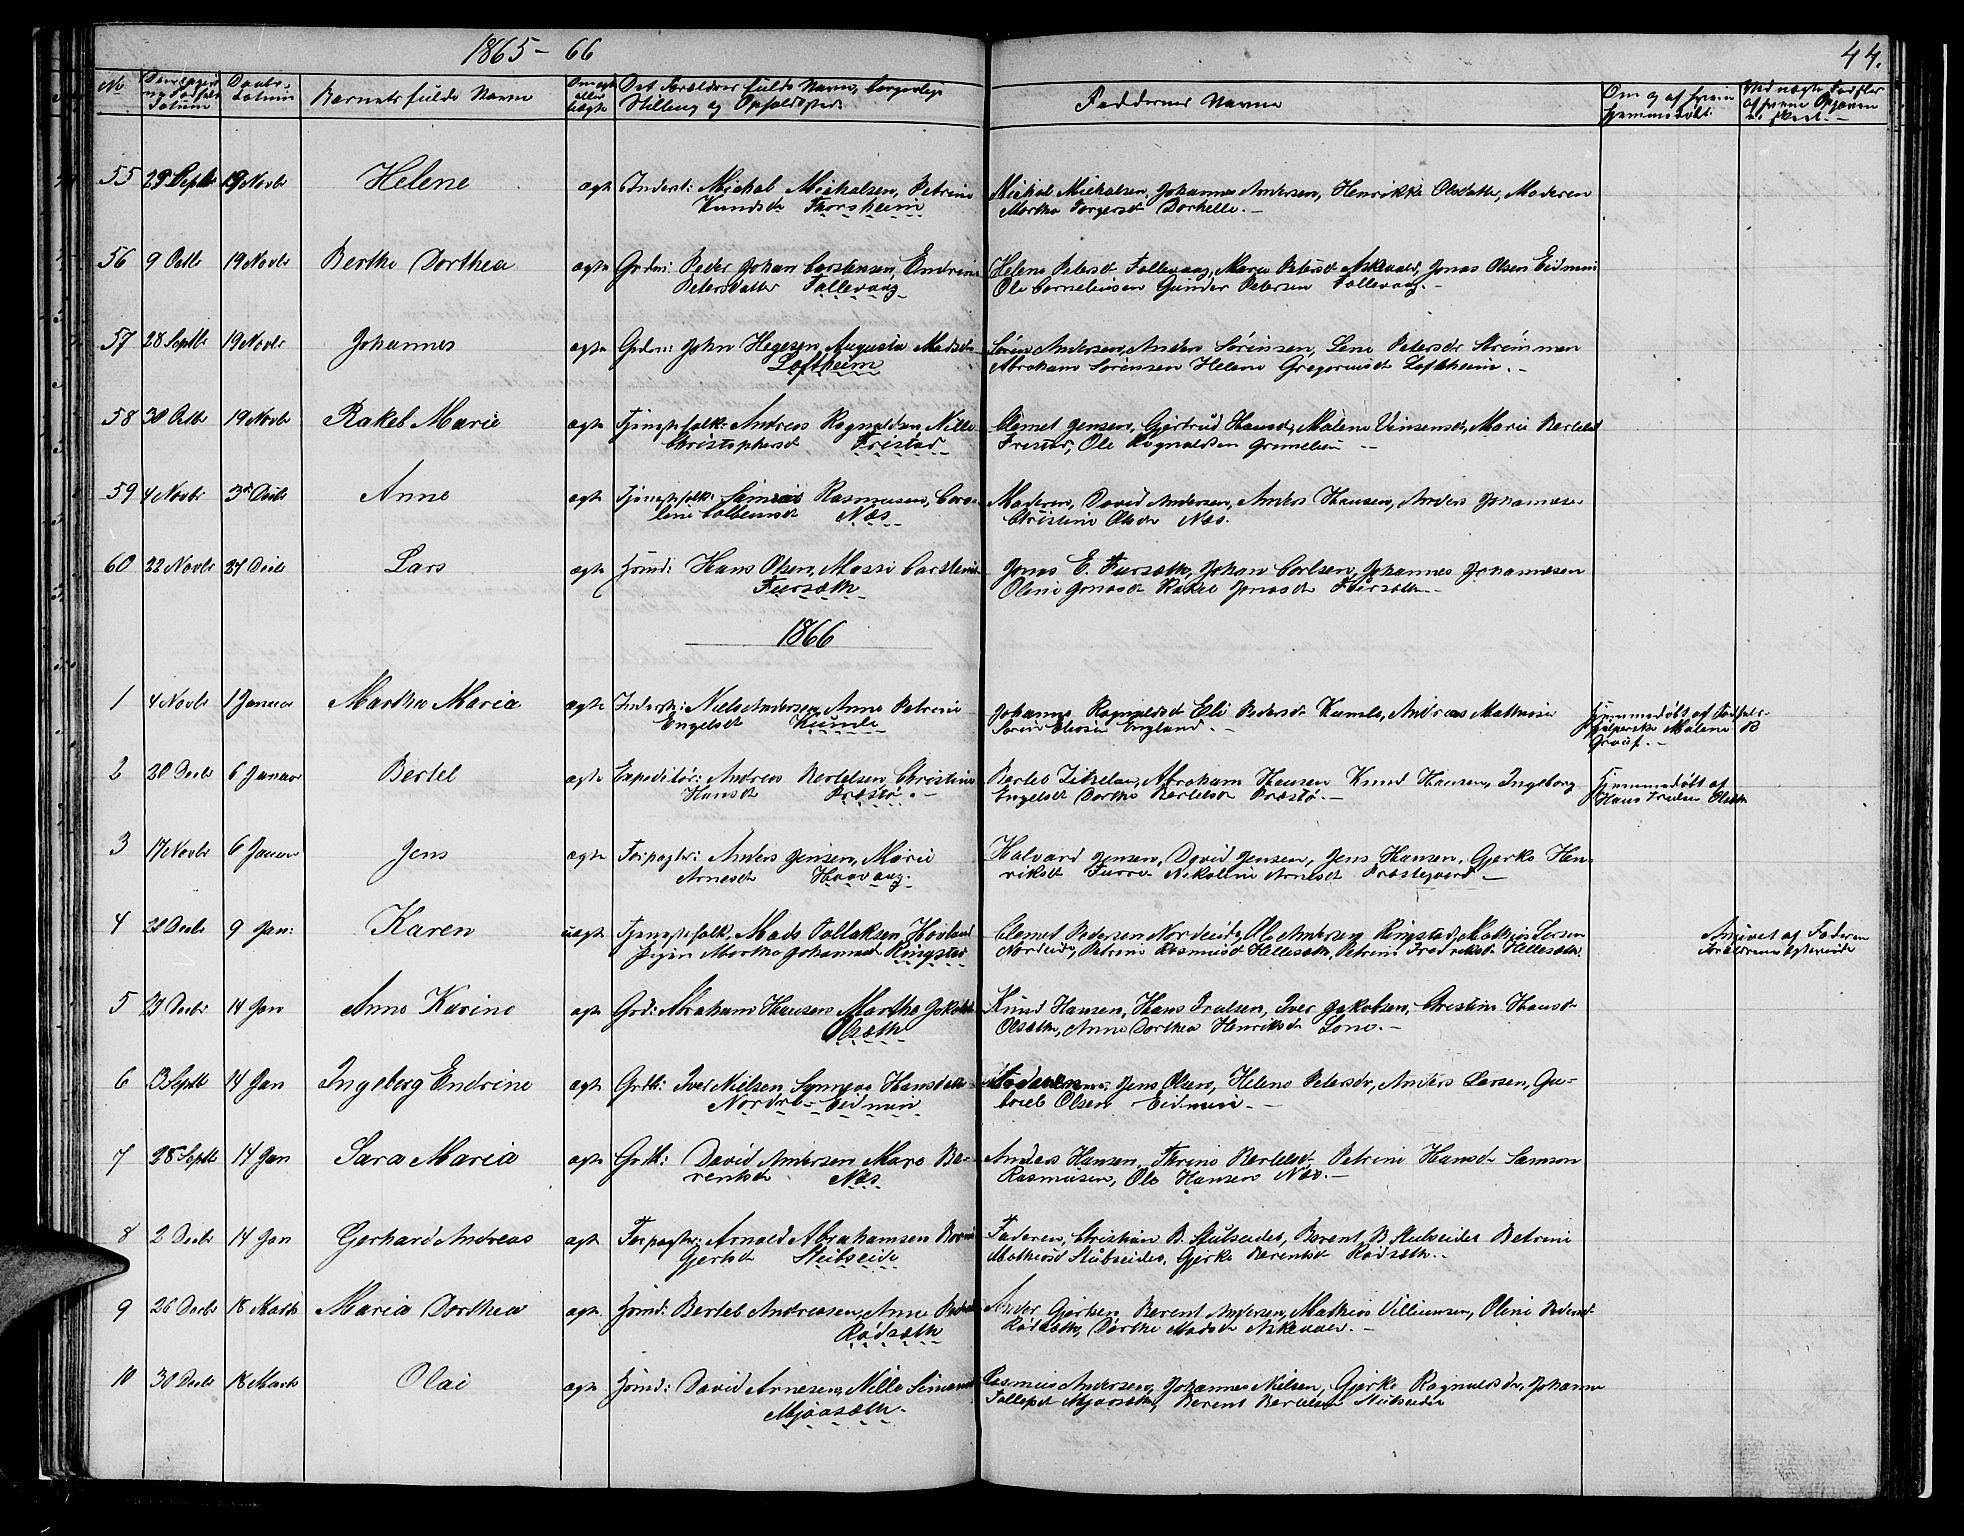 1865-66
44.
No
Daabs-
datum
Barnets fulde Navn
Det Forældres fulde Navn, borgerlige
Stilling og Opholdssted.
Faddernes Navne
Om og af hvem
hjemmedøbt.
55 29 Septbr 19 Novbr Helene ægte Inderst: Michal Michalsen, Petrine
Knudsdr Thorsheim
Michal Michalsen, Johannes Andersen, Henrikke Olsdatter, Moderen
Martha Torgersdr Dorhelle.-
56 9 Octbr 19 Novbr Berthe Dorthea ægte Grdm: Peder Johan Carstensen, Endrine
Petersdatter Follevaag
Helene Petersdr Follevaag, Marie Petersdr Askevaer, Jonas Olsen Eidmin
Ole Corneliussen Gunder Petersen Follevaag.-
57 28 Septbr 19 Novbr Johannes ægte Grdm: John Hegesen, Augusta Madsdr
Loftheim
Søren Andersen, Anders Sørensen, Lene Petersdr Strømmen
Abraham Sørensen Helene Gregoriusdr Loftheim.-
58 30 Octbr 19 Novbr Rakel Marie ægte Tjenestefolk: Andreas Rognaldsen, Nille
Christophersdr Tristad
Clemet Jensen, Gjertrud Hansdr, Malene Vinsensdr, Marie Bertelsd
Trestad, Ole Rognaldsen Grimelien -
59 4 Novbr 3die Decbr Anne ægte Tjenestefolk: Samson Rasmusen, Caro-
line Colbeinsdr Næs
Moderen, David Andersen, Anders Hansen, Anders Johannesen
Christine Olsdr Næs.
60 22 Novbr 27 Decbr Lars ægte Huusmd: Hans Olsen, Massi Carstensdr
Fursæth
Jonas E. Fursæth, Johan Carlsen, Johannes Johannesen
Oline Jonasdr Rakel Jonasdr Fursæth.-
1866
1 4 Novbr 1 Januar Martha Maria ægte Inderst: Niels Andersen, Anne Petrine
Engelsdr Kumle
Johanne Rognaldsdr Eli Pedersdr Kumle, Andreas Mathias
Søren Eliasen England.-
Hjemmedøbt af Jordmor-
Malene B
2 20 Decbr 6 Januar Bertel ægte Expeditør: Andreas Bertelsen, Christine
Hansdr Præstø.-
Bertel Abraham Hansen Knud Hansen, Ingeborg
Engelsdr Dorthe Bertelsdr Præstø.-
Hjemmedøbt af
Hans Trulsen Olsæth
3 17 Novbr 6 Januar Jens ægte Forpagter: Anders Jensen, Marie
Arnesdr Haavaag.
Halvard Jensen, David Jensen, Jens Hansen, Gjerke Hen-
riksdr Furre Nikoline Arnesdr Præstegaard -
4 28 Decbr 9 Jan: Karen uægte Tjenestefolk Mads Tollaksen, Hovland
Pigen Martha Johannesdr Ringstad
Clemet Pedersen Nordeide, Ole Andersen Ringstad, Mathias Larsen
Nordeide, Petrine Rasmusdr Hellesæth, Petrine Fredriksdr Hellesæth.
Angivet af Faderen
Forældrene
5 21 Decbr 14 Jan Anne Karine ægte Grd: Abraham Hansen Martha Jakobsdr
Olsæth
Knud Hansen, Hans Trulsen, Iver Jakobsen, Christine Hansdr
Olsæth, Anne Dorthea Henriksdr Lone.-
6 13 Septbr 14 Jan Ingeborg Endrine ægte Grdb: Iver Nielsen, Synneva Hansdatter
Nordre - Eidmin
Jens Olsen, Helene Petersdr, Anders Larsen, Ga-
briel Olsen Eidmin.-
7 28 Septbr 14 Jan Sara Maria ægte Grdb: David Andersen Mare Be-
rentsdr Næs
Anders Hansen, Terine Bertelsdr Petrine Hansdr Samson
Rasmusen, Ole Hansen Næs.-
8 2 Decbr 14 Jan Gerhard Andreas ægte Forpagter: Arnold Abrahamsen
Gjertsdr Stubseide
Faderen, Christian B. Stubseidet, Berent B Stubseidet Petrine
Mathiasdr Stubseidet, Gjerke Berentsdr Rødsæth.-
9 26 Decbr 18 Marts Maria Dorthea ægte Huusmd: Bertel Andreasen, Anne
Rødsæth
Anders Gjertsen, Berent Andersen, Mathias Villiumsen, Oline Pedersdr
Rødsæth, Dorthe Madsdr Askevaer.-
10 30 Decbr 18 Marts Olai ægte Huusmd: David Arnesen, Nille Simonsdr
Mjaasæth.
Rasmus Andersen, Johannes Nielsen, Gjerke Rognaldsdr, Johanne
Mjaasæth, Berent Bertelsen Stubseide